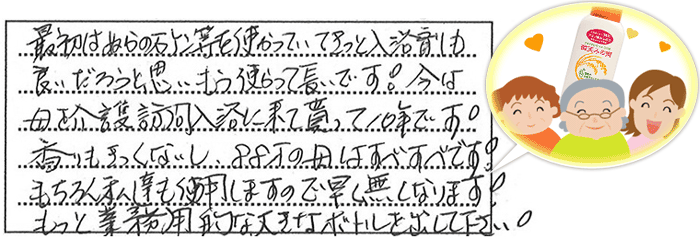 最初はぬらの石けん等を使かっていてきっと入浴剤は
良いだろうと思いもう使らって長いです！今は
母を介護訪問入浴に来て貰って10年です！
香りもきつくないし、88才の母はすべすべです！
もちろん私達も使用しますので早く無しなります！
もっと業務用的な大きなボトルを出して下さい。